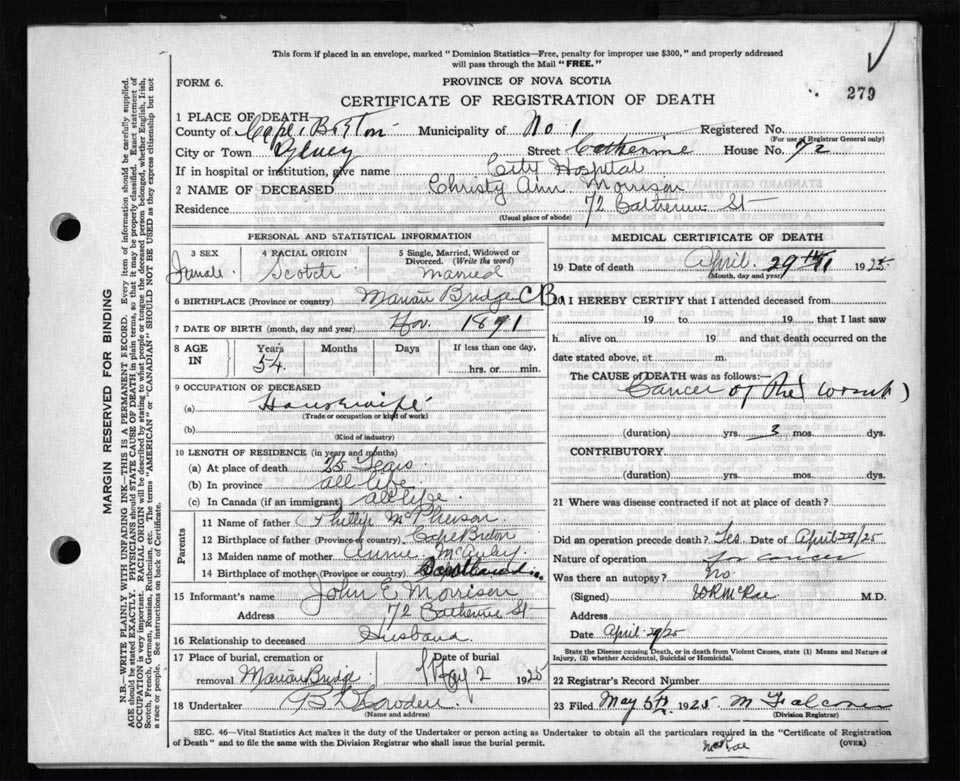 This form if placed in an envelope, marked "Dominion Statistics—Free, penalty for improper use $300," and properly addressed
will pass through the Mail "FREE."
FORM 6.
PROVINCE OF NOVA SCOTIA
279
CERTIFICATE OF REGISTRATION OF DEATH
1 PLACE OF DEATH
County of Cape Breton Municipality of No. 1 Registered No.
(For use of Registrar General only)
City or Town Sydney Street Catherine House No. 72
If in hospital or institution, give name City Hospital
2 NAME OF DECEASED Christy Ann Morrison
Residence 72 Catherine St
(Usual place of abode)
PERSONAL AND STATISTICAL INFORMATION
3 SEX
Female
4 RACIAL ORIGIN
Scotch
5 Single, Married, Widowed or
Divorced. (Write the word)
Married
6 BIRTHPLACE (Province or country) Marian Bridge C B
7 DATE OF BIRTH (month, day and year) Nov. 1891
8 AGE IN
Years Months Days If less than one day,
54 hrs. or min.
9 OCCUPATION OF DECEASED
(a) Housewife
(Trade or occupation or kind of work)
(b)
(Kind of industry)
10 LENGTH OF RESIDENCE (in years and months)
(a) At place of death 25 Years
(b) In province all life
(c) In Canada (if an immigrant) all life
Parents
11 Name of father Phillip McPherson
12 Birthplace of father (Province or country) Cape Breton
13 Maiden name of mother Annie McAuley
14 Birthplace of mother (Province or country) Scotland
15 Informant's name John E Morrison
Address 72 Catherine St
16 Relationship to deceased Husband
17 Place of burial, cremation or Date of burial
removal Marian Bridge May 2 1925
18 Undertaker
(Name and address)
MEDICAL CERTIFICATE OF DEATH
19 Date of death April 29th 1925
(Month, day and year)
20 I HEREBY CERTIFY that I attended deceased from
19 to 19 that I last saw
h alive on 19 and that death occurred on the
date stated above, at m.
The CAUSE of DEATH was as follows:
Cancer of the (womb)
(duration) yrs. 3 mos. dys.
CONTRIBUTORY.
(duration) yrs. mos. dys.
21 Where was disease contracted if not at place of death?
Did an operation precede death? Yes Date of April 29/25
Nature of operation for cancer
Was there an autopsy? No
(Signed) McRae M.D.
Address
Date April 29/25
State the Disease causing Death, or in death from Violent Causes, state (1) Means and Nature of
Injury, (2) whether Accidental, Suicidal or Homicidal.
22 Registrar's Record Number
23 Filed May 5th 1925 M Falconer
(Division Registrar)
SEC. 46—Vital Statistics Act makes it the duty of the Undertaker or person acting as Undertaker to obtain all the particulars required in the "Certificate of Registration
of Death" and to file the same with the Division Registrar who shall issue the burial permit. (OVER)
McRae
MARGIN RESERVED FOR BINDING
N.B.—WRITE PLAINLY WITH UNFADING INK—THIS IS A PERMANENT RECORD. Every item of information should be carefully supplied.
AGE should be stated EXACTLY. PHYSICIANS should STATE CAUSE OF DEATH in plain terms, so that it may be properly classified. Exact statement of
OCCUPATION is very important. RACIAL ORIGIN will be described by stating to what people or tongue the deceased person belonged, whether English, Irish,
Scotch, French, German, Russian, Ruthenian, etc. The terms "AMERICAN" or "CANADIAN" SHOULD NOT BE USED as they express citizenship but not
a race or people. See instructions on back of Certificate.